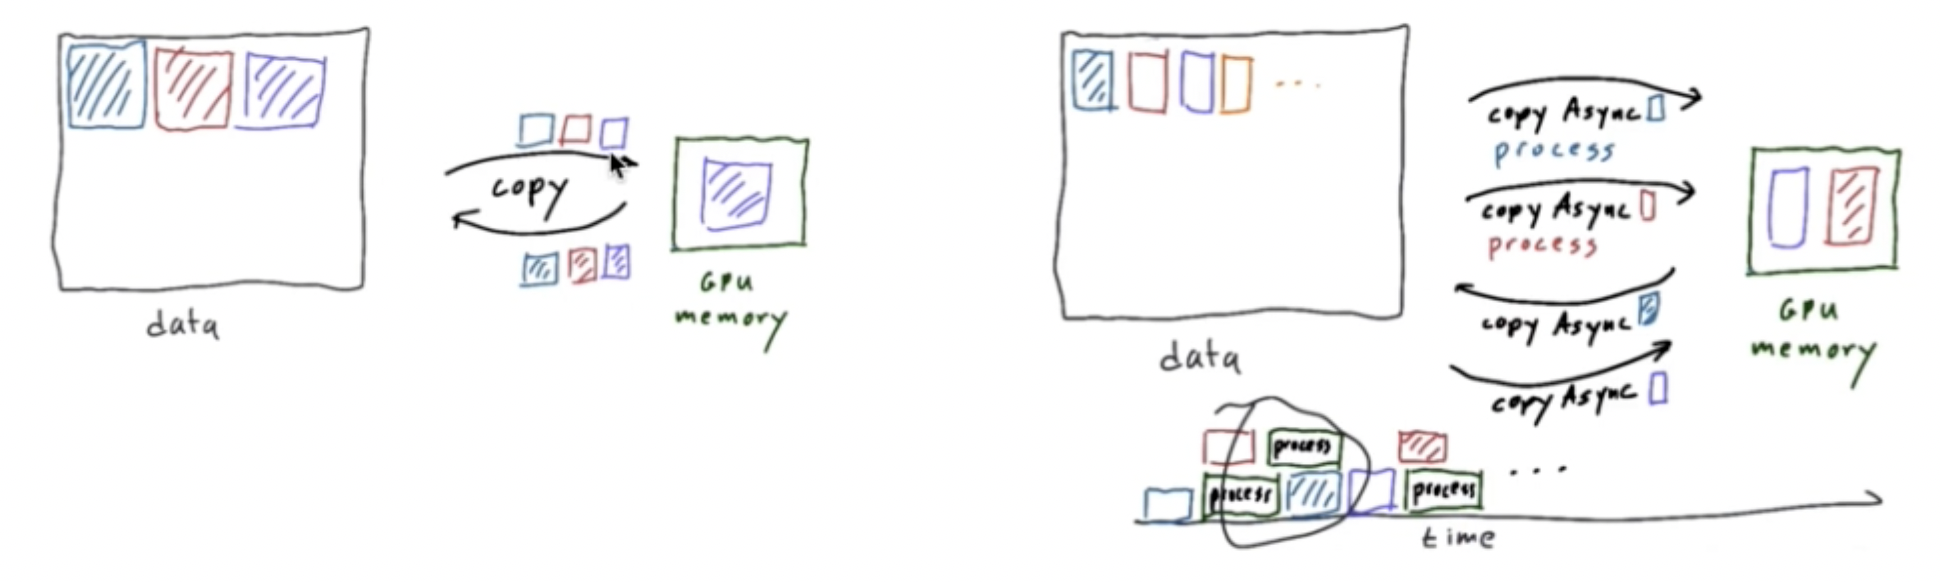 copy
GPU
memory
data
copy Async
process
copy Async
process
copy Async
copy Async
GPU
memory
data
process
process
process
...
time